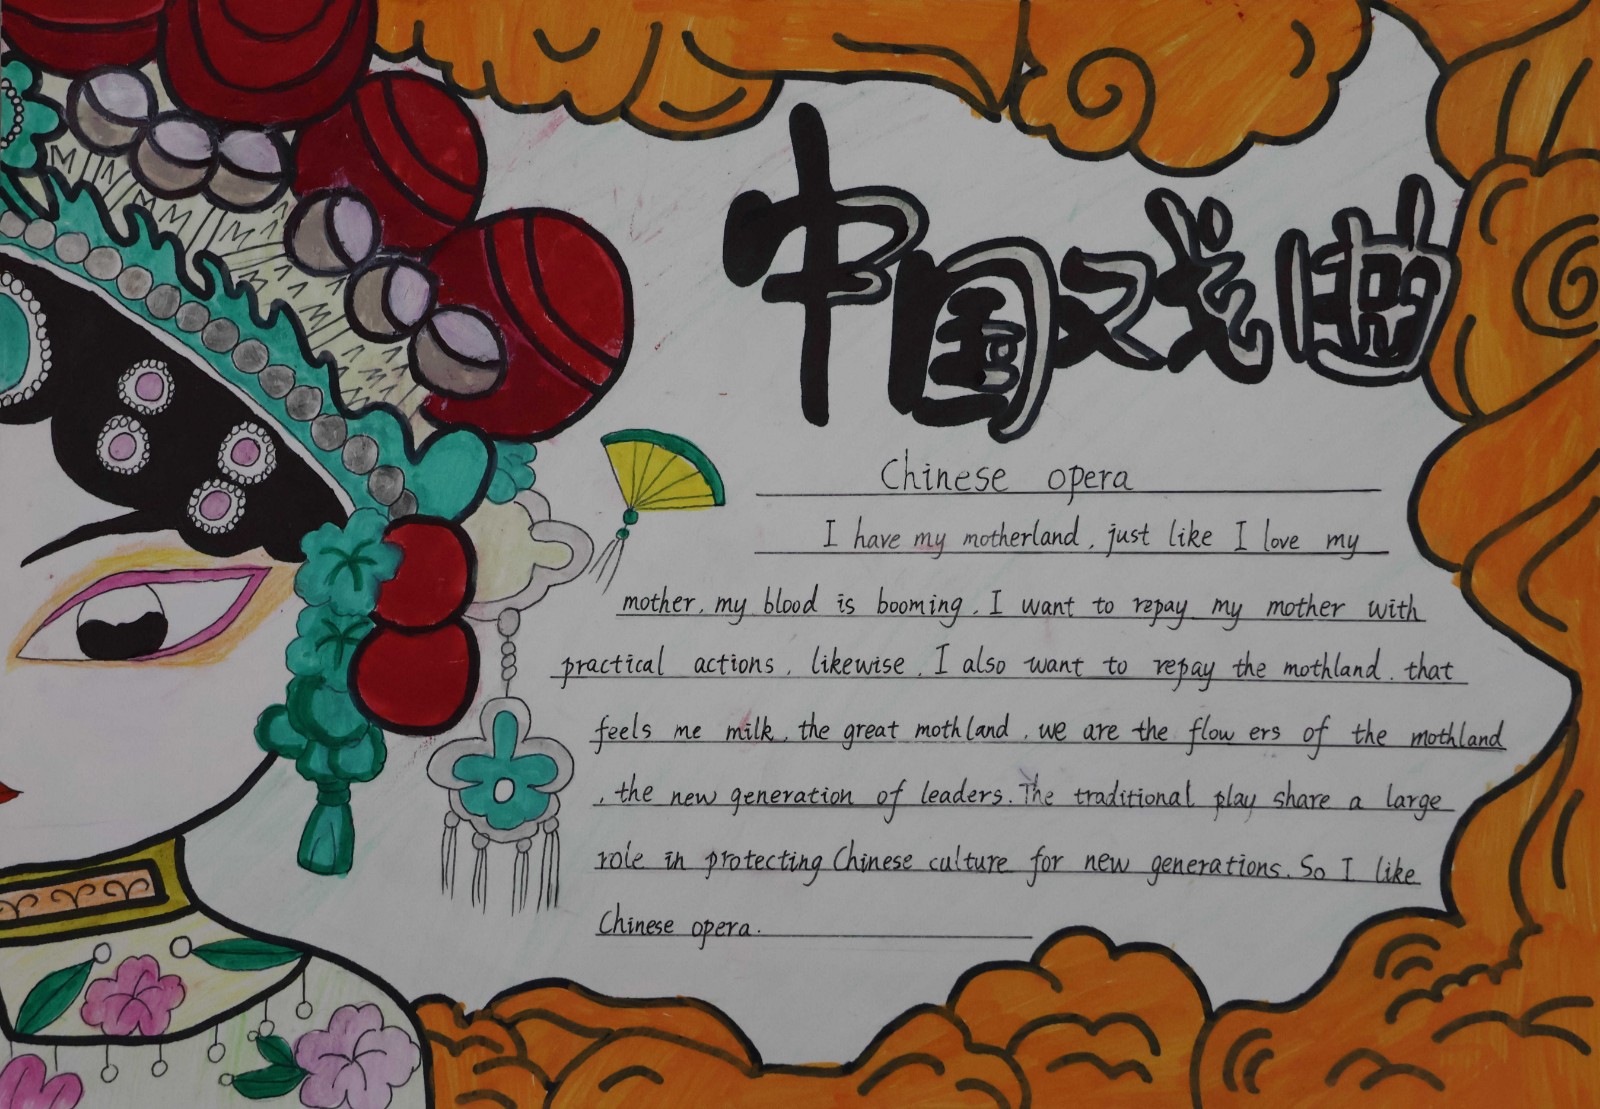 中国戏曲
Chinese opera
I have my motherland, just like I love my
mother, my blood is booming, I want to repay my mother with
practical actions, likewise, I also want to repay the mothland, that
feels me milk, the great mothland, we are the flowers of the mothland
, the new generation of leaders. The traditional play share a large
role in protecting Chinese culture for new generations. So I like
Chinese opera.